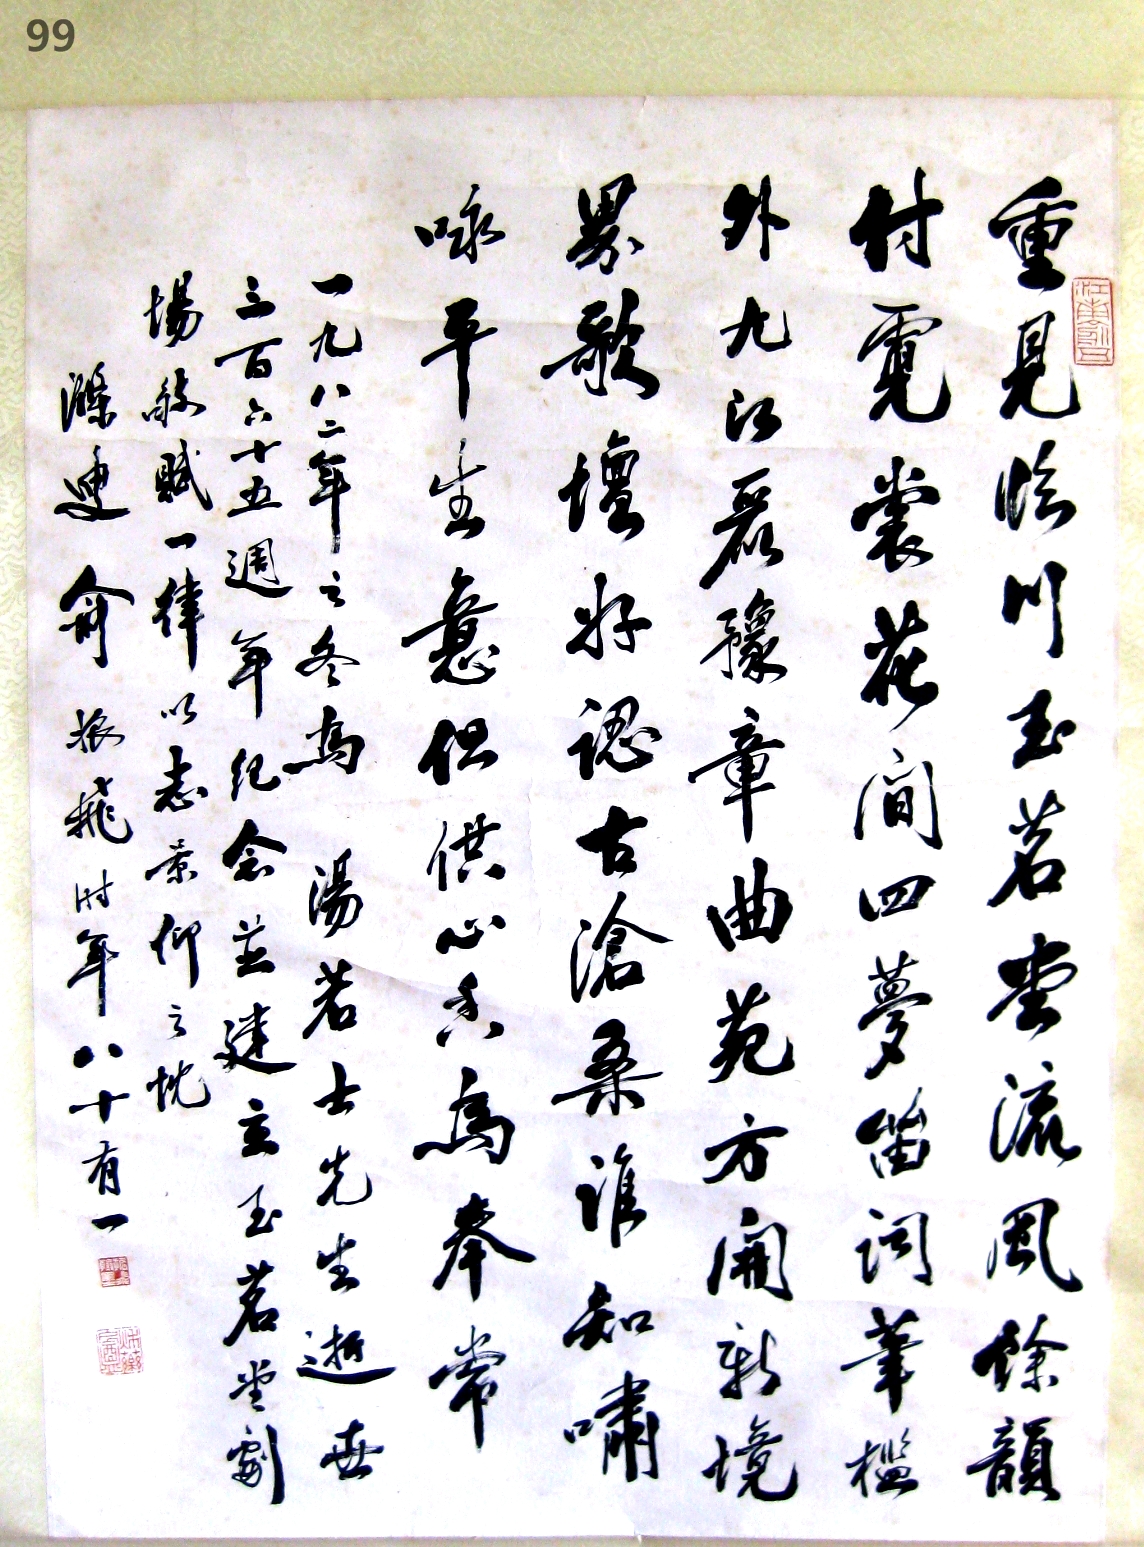 99
重見臨川玉茗堂流風餘韻
付霓裳花間四夢笛詞筆檻
外九江麗豫章曲苑方開新境
界歌壇好認古滄桑誰知嘯
咏平生意但供心香為奉常
一九八二年之冬為湯若士先生逝世
三百六十五週年紀念並建立玉茗堂劇
場敬賦一律以志景仰之忱
滌叟俞振飛时年八十有一